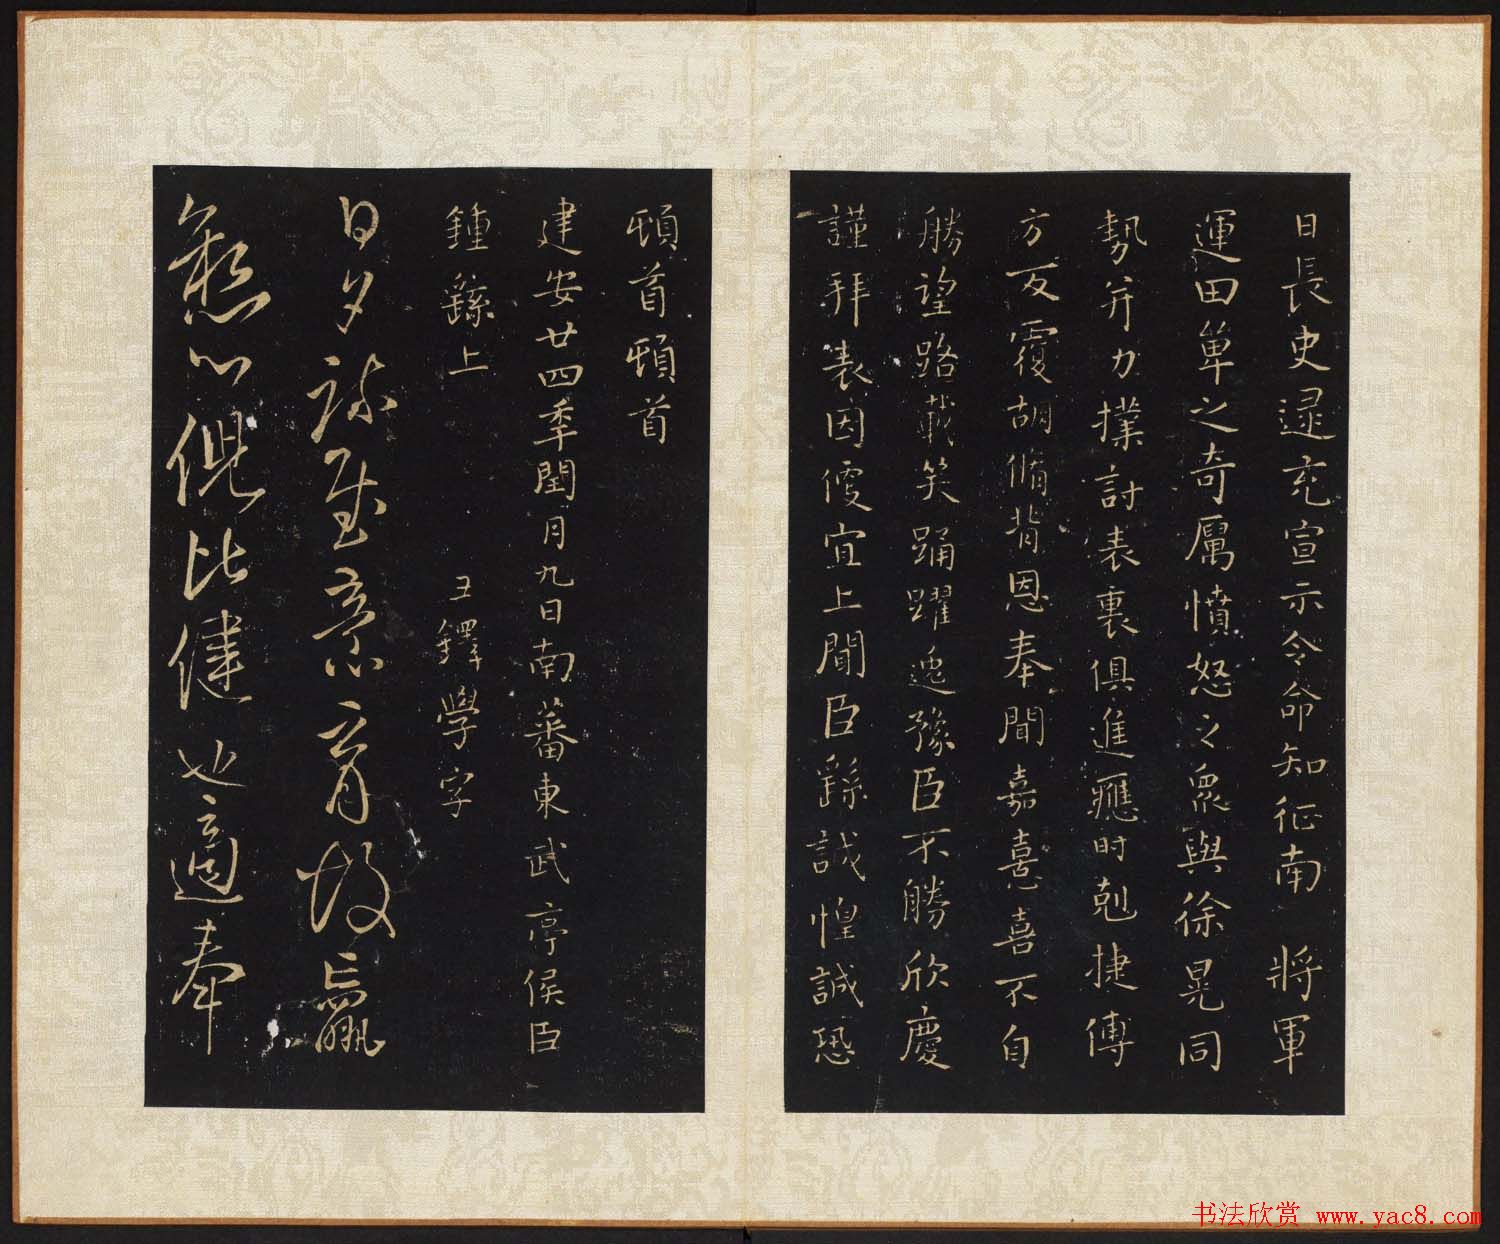 日長史逯充宣示令命知征南將軍
運田單之奇厲憤怒之眾與徐晃同
勢并力撲討表裏俱進應時剋捷傅
方反覆胡脩背恩奉聞嘉憙喜不自
勝望路載笑踊躍逸豫臣不勝欣慶
謹拜表因便宜上聞臣繇誠惶誠恐
頓首頓首
建安廿四季閏月九日南蕃東武亭侯臣
鍾繇上
王鐸學字
日夕疎至育故羸
心倪比健也適奉
书法欣赏 www.yac8.com